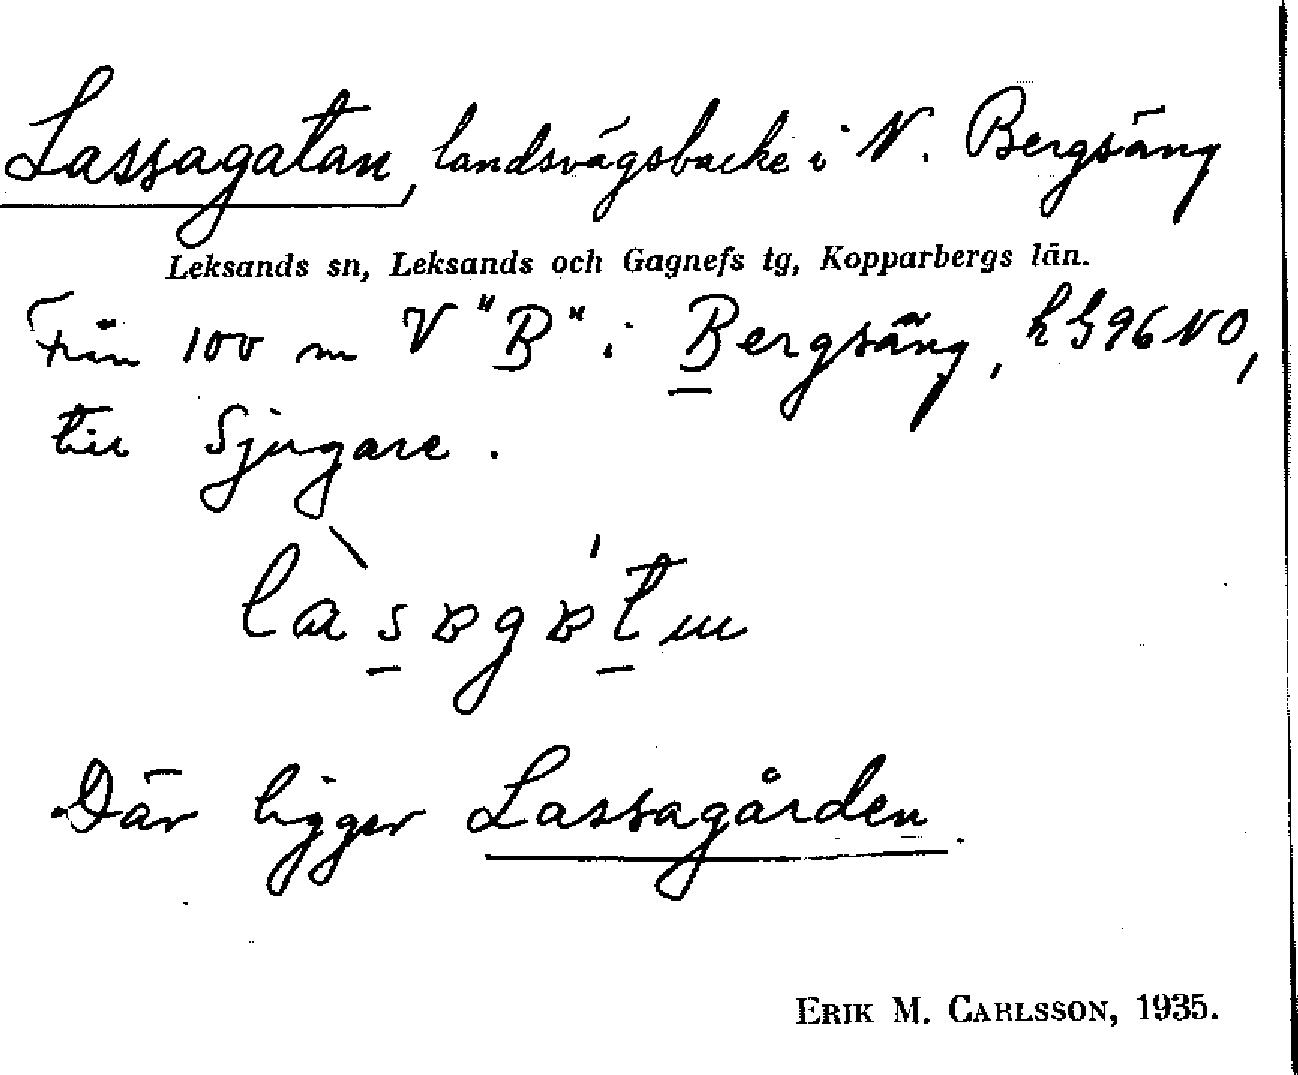 Lassagatan, landsvägsbacke i N. Bergsäng
Leksands sn, Leksands och Gagnefs tg, Kopparbergs län.
Från 100 m V "B" i Bergsäng, 96 NO,
till Sjugare.
Där ligger Lassagården.
ERIK M. CARLSSON, 1935.